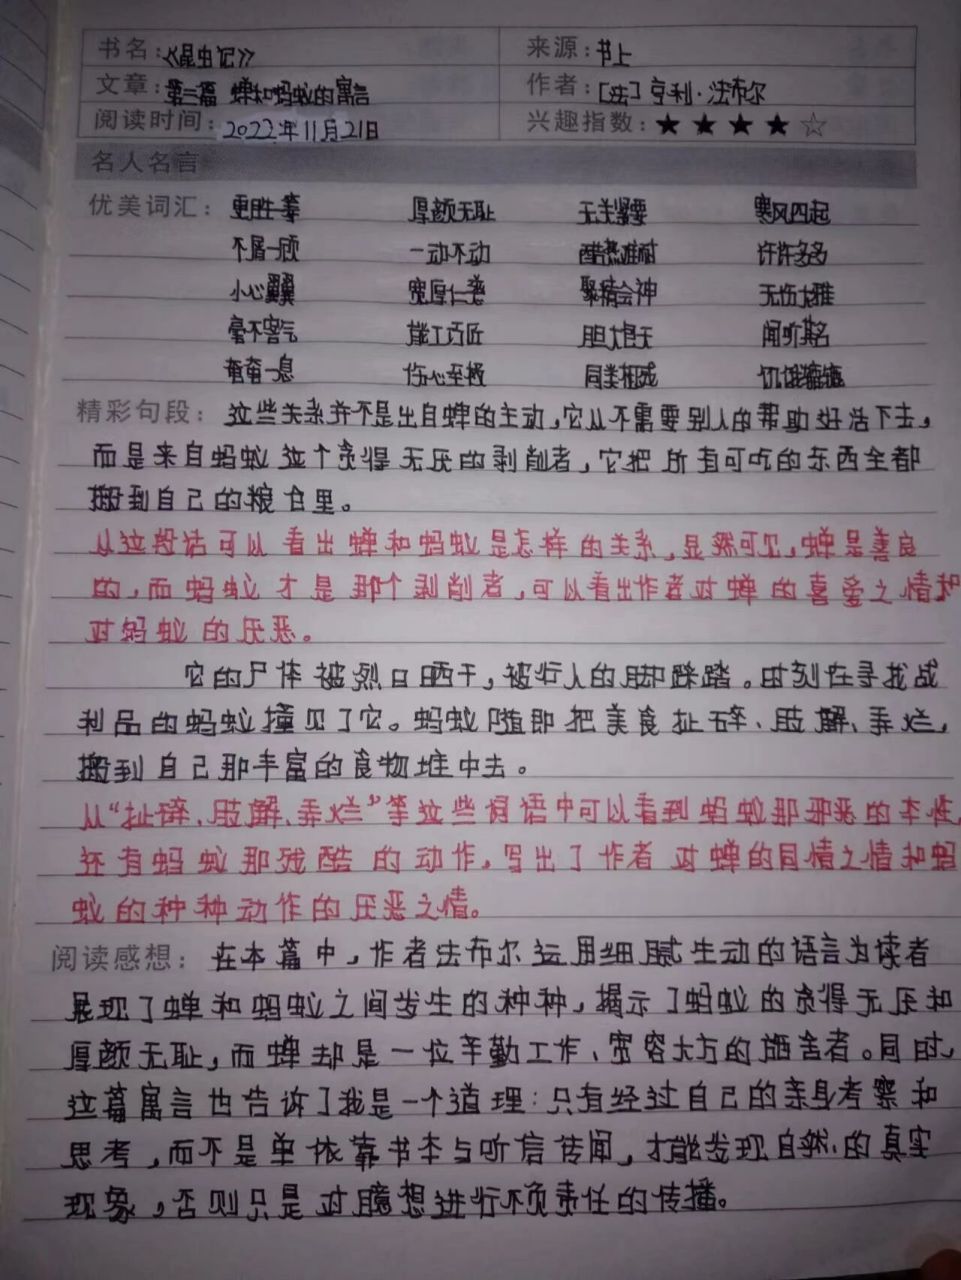 书名：《昆虫记》 来源：书上
文章：第二篇 蝉和蚂蚁的寓言 作者：[法]亨利·法布尔
阅读时间：2022年11月21日 兴趣指数：★★★★☆
名人名言
优美词汇：更胜一筹 厚颜无耻 无关紧要 寒风四起
不屑一顾 一动不动 酷热难耐 许许多多
小心翼翼 宽厚仁慈 聚精会神 无伤大雅
毫不客气 能工巧匠 胆大包天 闻听其名
奄奄一息 伤心至极 同类相残 饥饿难
精彩句段：这些关系并不是出自蝉的主动，它从不需要别人的帮助好活下去，
而是来自蚂蚁这个贪得无厌的剥削者，它把所有可吃的东西全都
搬到自己的粮仓里。
从这段话可以看出蝉和蚂蚁是怎样的关系，显然可见，蝉是善良
的，而蚂蚁才是那个剥削者，可以看出作者对蝉的喜爱之情和
对蚂蚁的厌恶。
它的尸体被烈日晒干，被行人的脚踩踏。时刻在寻找战
利品的蚂蚁撞见了它。蚂蚁随即把美食扯碎、肢解、弄烂，
搬到自己那丰富的食物堆中去。
从“扯碎、肢解、弄烂”等这些词语中可以看到蚂蚁那邪恶的本性，
还有蚂蚁那残酷的动作，写出了作者对蝉的同情之情和蚂
蚁的种种动作的厌恶之情。
阅读感想：在本篇中，作者法布尔运用细腻生动的语言为读者
展现了蝉和蚂蚁之间发生的种种，揭示了蚂蚁的贪得无厌和
厚颜无耻，而蝉却是一位辛勤工作、宽容大方的施舍者。同时，
这篇寓言也告诉了我是一个道理：只有经过自己的亲身考察和
思考，而不是单依靠书本与听信传闻，才能发现自然的真实
现象，否则只是对臆想进行不负责任的传播。